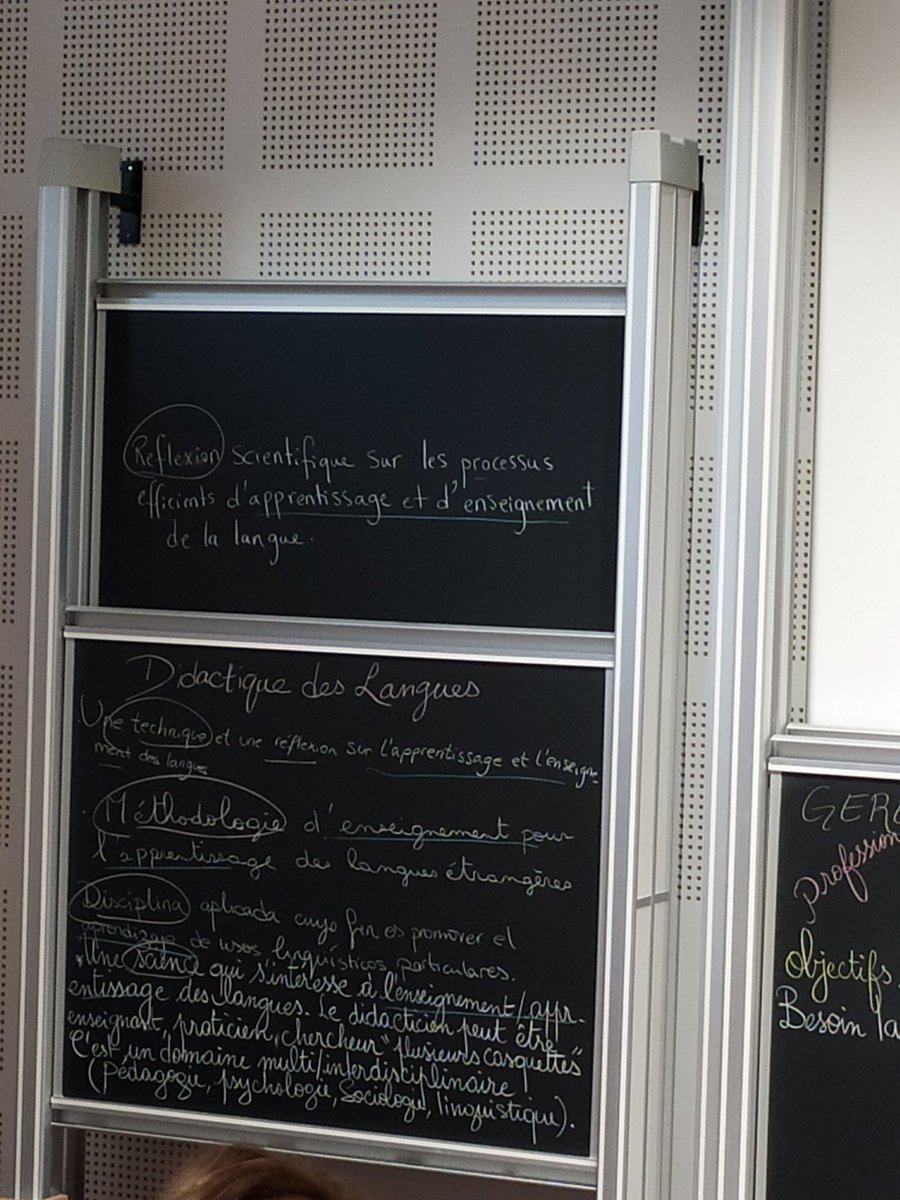 Reflexion scientifique sur les processus
efficients d'apprentissage et d'enseignement
de la langue.
Didactique des Langues
Une technique et une réflexion sur l'apprentissage et l'enseigne-
ment des langues
. Méthodologie d'enseignement pour
l'apprentissage des langues étrangères
Disciplina aplicada cuyo fin es promover el
aprendizaje de usos lingüísticos particulares.
*Une science qui s'intéresse à l'enseignement/appr-
entissage des langues. Le didacticien peut être
enseignant, praticien, chercheur "plusieurs casquettes"
C'est un domaine multi/interdisciplinaire
(Pédagogie, psychologie, Sociologie, linguistique).
GER
Profession
Objectifs
Besoin la